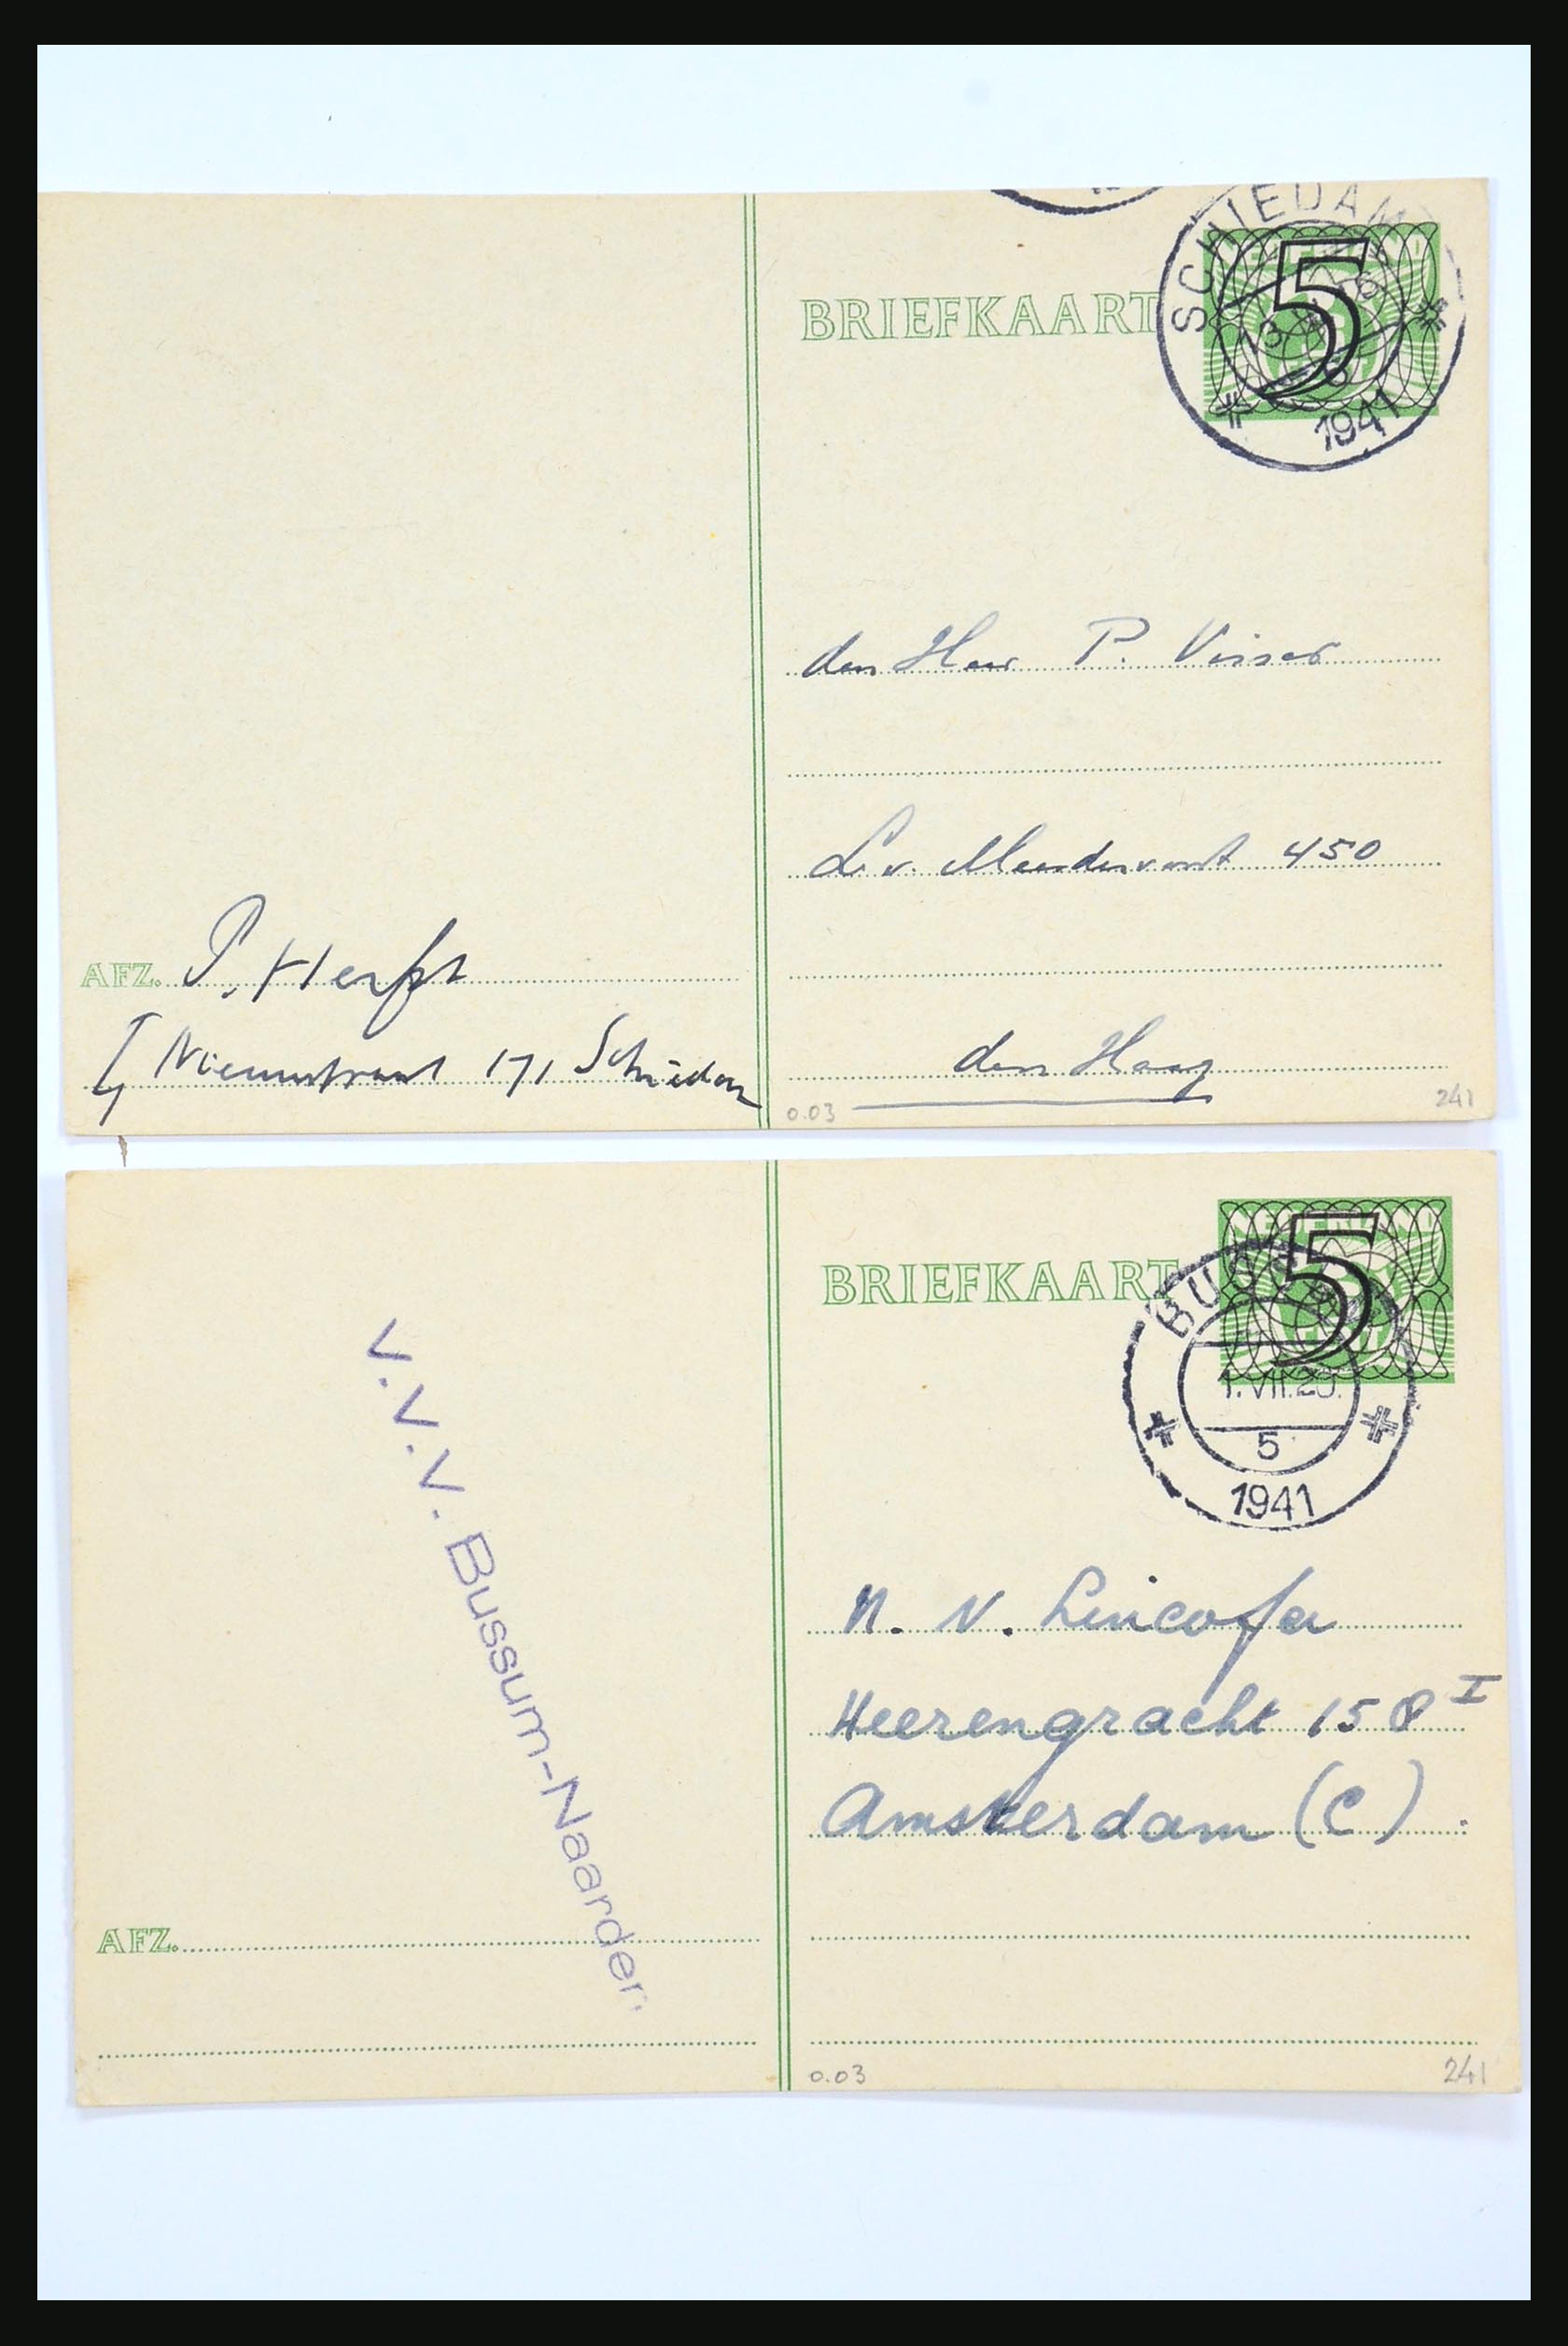 SCHIEDAM
BRIEFKAART
NEDERLAND
5
1941
den Heer P. Visser
L. v. Meerdervoort 450
AFZ. P. Herfst
Nieuwstraat 171 Schiedam
den Haag
0.03
241
BRIEFKAART
NEDERLAND
5
BUSSUM
1.VII.20.
5
1941
V.V.V. Bussum-Naarden
N.V. Lincofa
Heerengracht 158 I
Amsterdam (C).
AFZ.
0.03
241